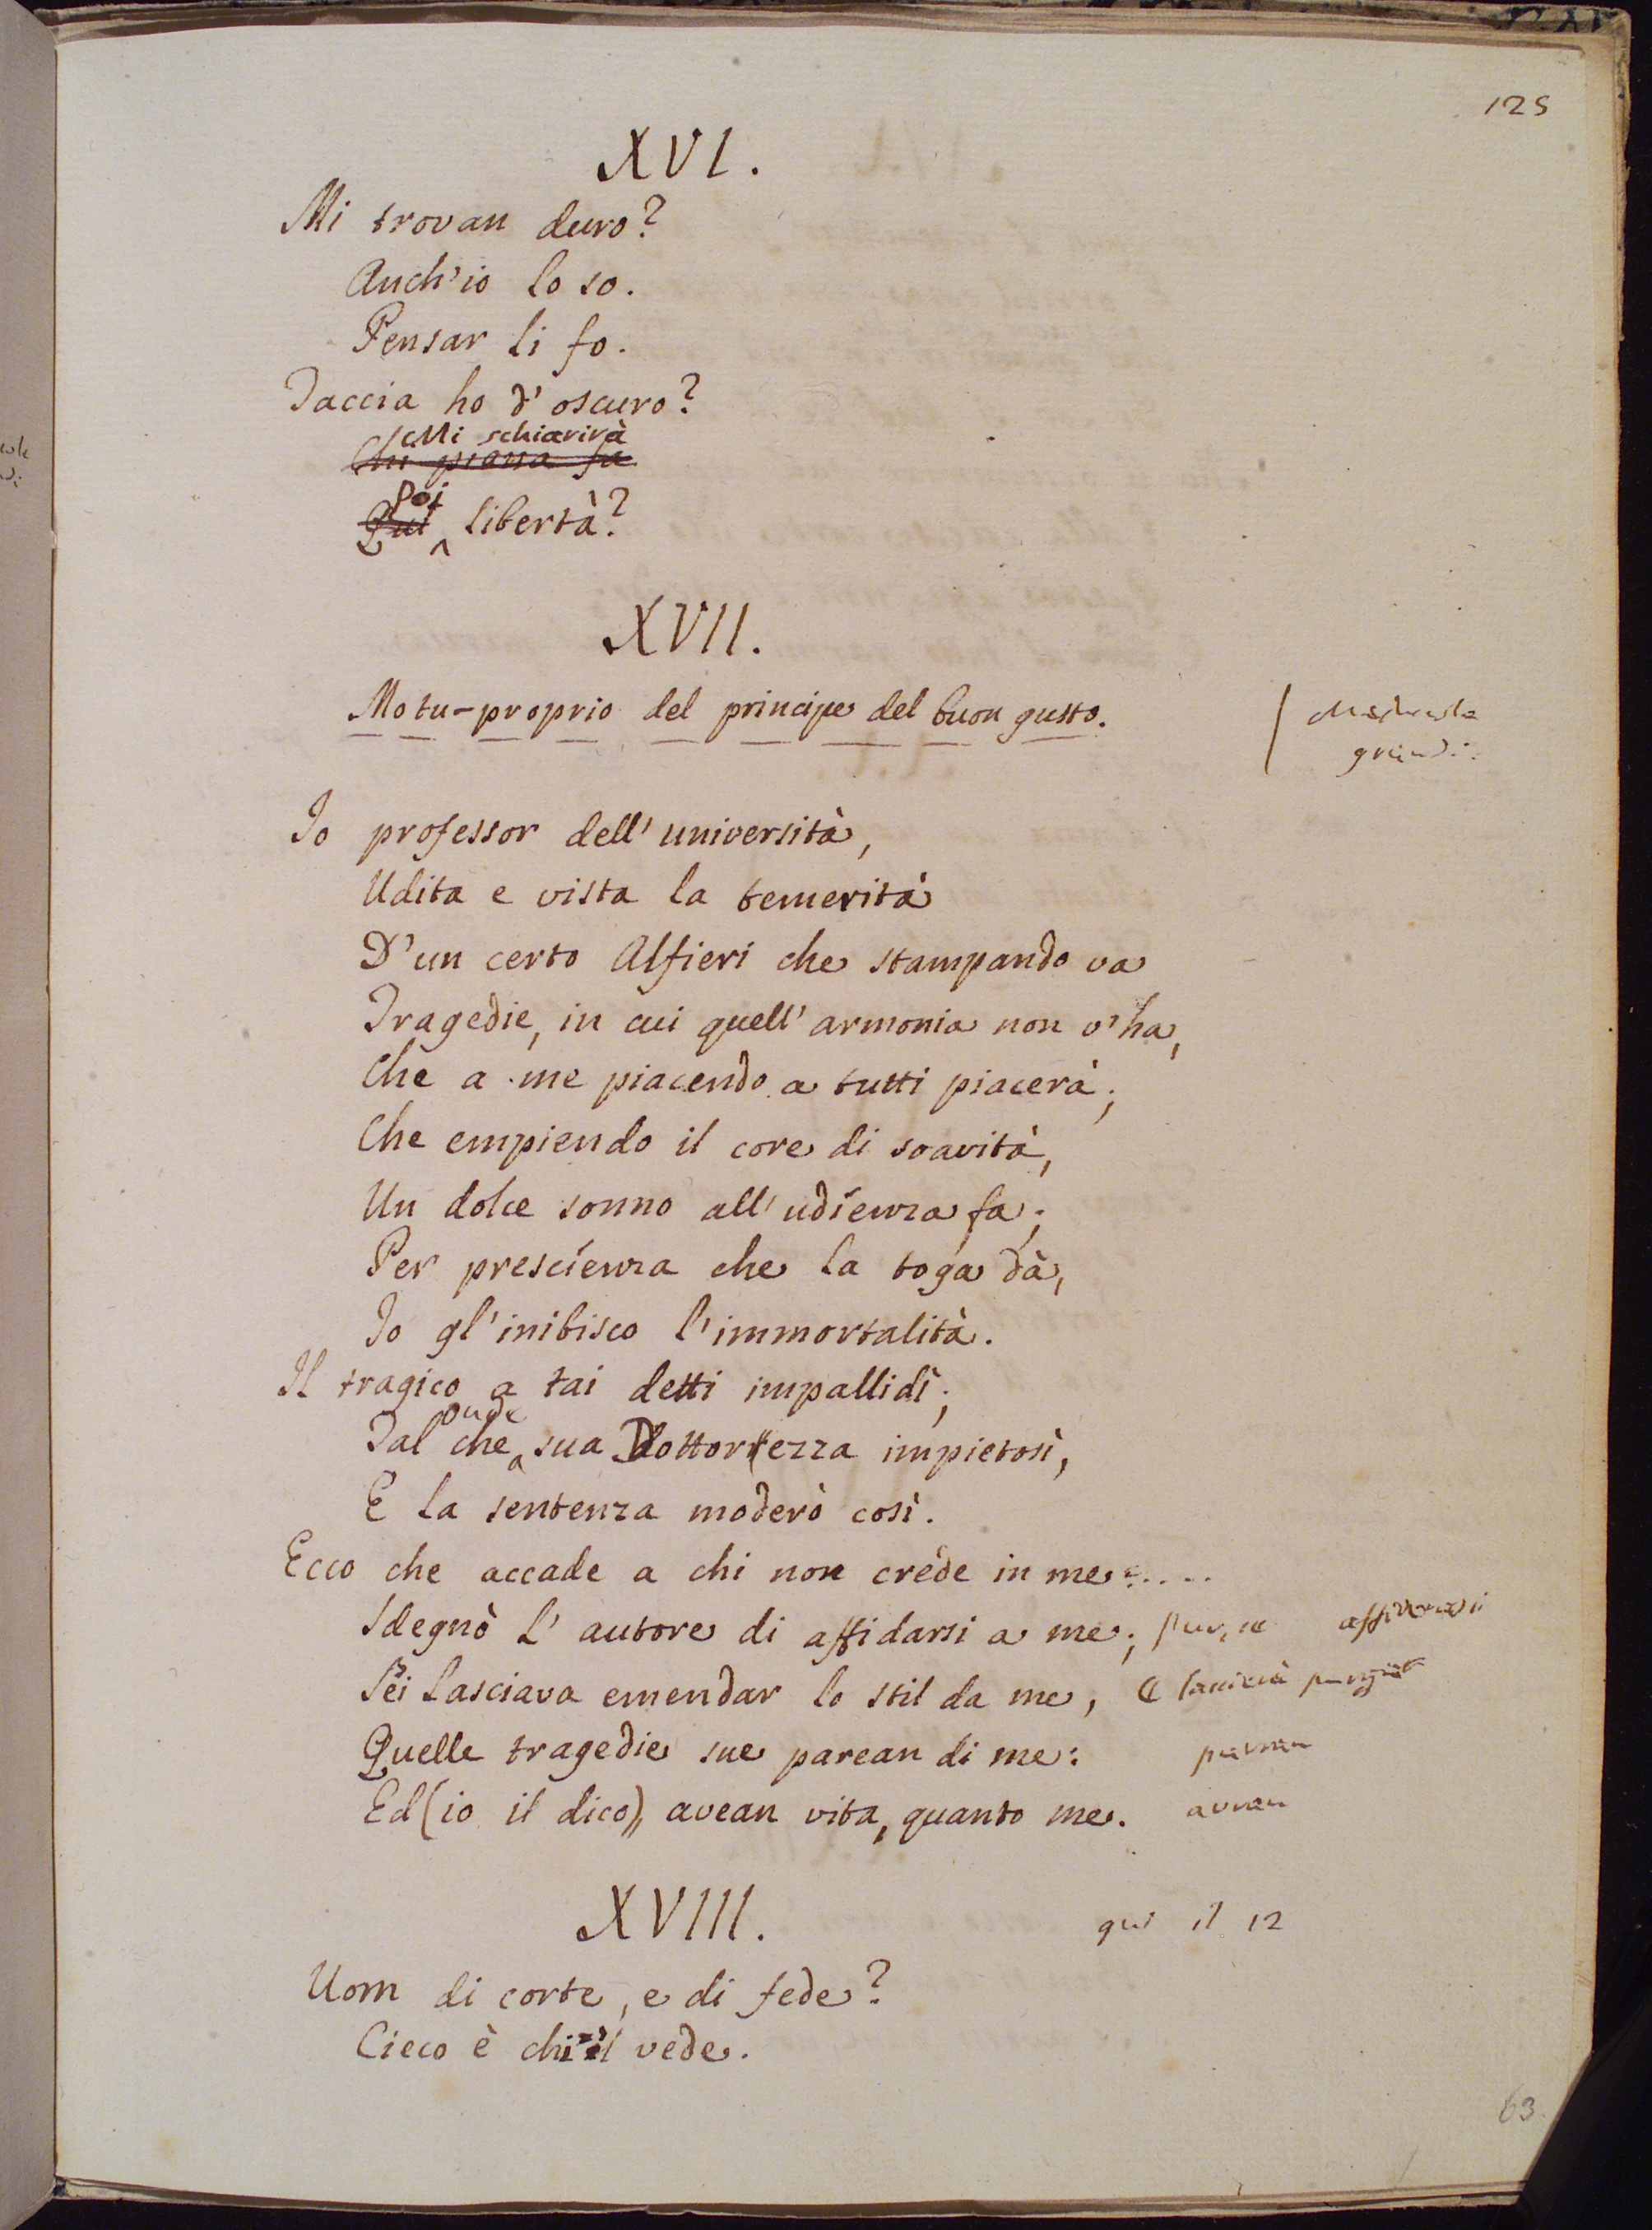 125
XVI.
Mi trovan duro?
Anch'io lo so.
Pensar li fo.
Taccia ho d'oscuro?
Mi schiarirà
Chi piana fa
Poi
Qui libertà?
XVII.
Motu-proprio del principe del buon gusto.
Io professor dell'università,
Udita e vista la temerità
D'un certo Alfieri che stampando va
Tragedie, in cui quell'armonia non v'ha,
Che a me piacendo a tutti piacerà;
Che empiendo il core di soavità,
Un dolce sonno all'udienza fa;
Per prescienza che la toga dà,
Io gl'inibisco l'immortalità.
Il tragico a tai detti impallidì;
onde
Tal che sua Dottorezza impietosì,
E la sentenza moderò così.
Ecco che accade a chi non crede in me:....
Sdegnò l'autore di affidarsi a me;
Sei lasciava emendar lo stil da me,
Quelle tragedie sue parean di me:
Ed (io il dico), avean vita, quanto me.
avran
XVIII.
qui il 12
Uom di corte, e di fede?
Cieco è chi il vede.
63.